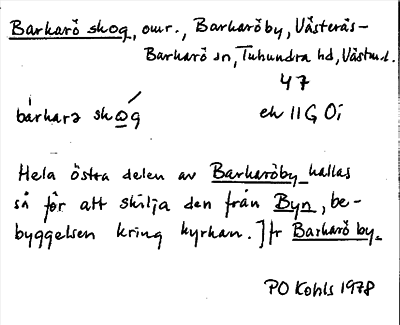 Barkarö skog, omr., Barkaröby, Västerås-
Barkarö sn, Tuhundra hd, Västml.
47
barkarə skog ek 11G 0i
Hela östra delen av Barkaröby kallas
så för att skilja den från Byn, be-
byggelsen kring kyrkan.] fr Barkaröby.
PO Kohls 1978